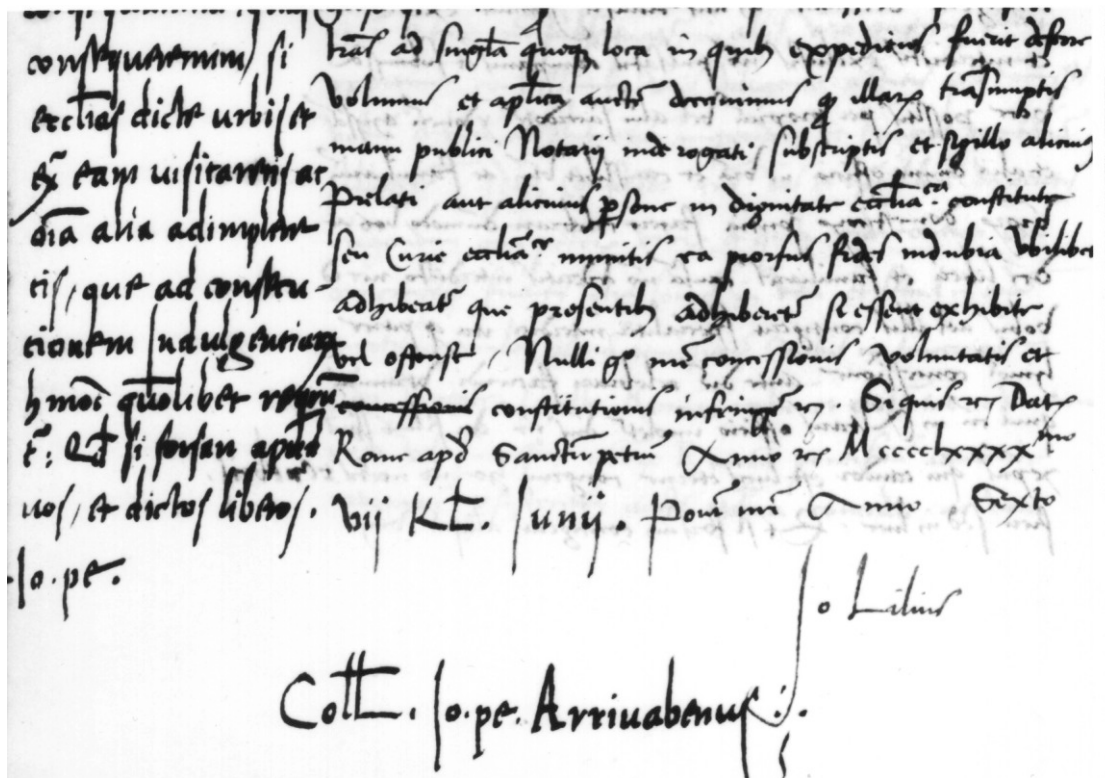 consequerentur, si
eccl̃ias dicte urbis et
eẽ eam uisitantis ac
oĩa alia adimplen
tis, que ad consecu-
tionem Indulgentiarꝝ
hmõi quõlibet
: Qđ si forsan apud
uos, et dictos liberos.
.Io. pe.
trãs ad singl̃a quoq loca in quibꝫ expediens fuerit deferre
Volumus et apl̃ica aucte decernimus ꝙ illarꝝ trãsumptis
manu publici Notarij inde rogati, subscriptis et sigillo alicuius
Prelati aut alicuius ꝑsone in dignitate ecclĩa.ᶜᵃ constitute
seu Curie ecclĩaᶜᵉ munitis ea prorsus fides indubia ubilibet
adhibeatr̃ que presentibꝫ adhiberetr̃ si essent exhibite
vel ostense, Nulli gͦ nr̃e concessionis voluntatis et
concessionis constitutionis infringere ꝛc̃ Siquis ꝛc̃ Datꝝ
Rome apđ Sanctũpetrũ Anno ꝛc̃ Mcccclxxxxᵐᵒ
vij Kl̃. Junij. Pont nr̃i Anno Sexto
Jo Lilius
Coll̃. Io. pe. Arriuabenus.